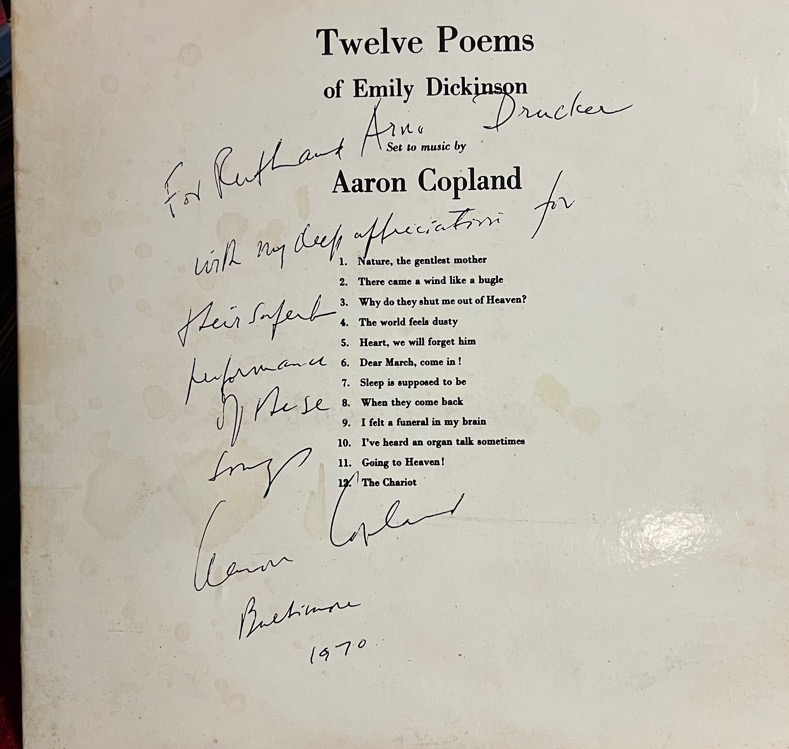 Twelve Poems
of Emily Dickinson
For Ruth and Arno Drucker
Set to music by
Aaron Copland
with my deep appreciation for
1. Nature, the gentlest mother
2. There came a wind like a bugle
3. Why do they shut me out of Heaven?
their superb
4. The world feels dusty
5. Heart, we will forget him
performance
6. Dear March, come in!
7. Sleep is supposed to be
of these
8. When they come back
9. I felt a funeral in my brain
10. I've heard an organ talk sometimes
songs
11. Going to Heaven!
12. The Chariot
Aaron Copland
Baltimore
1970